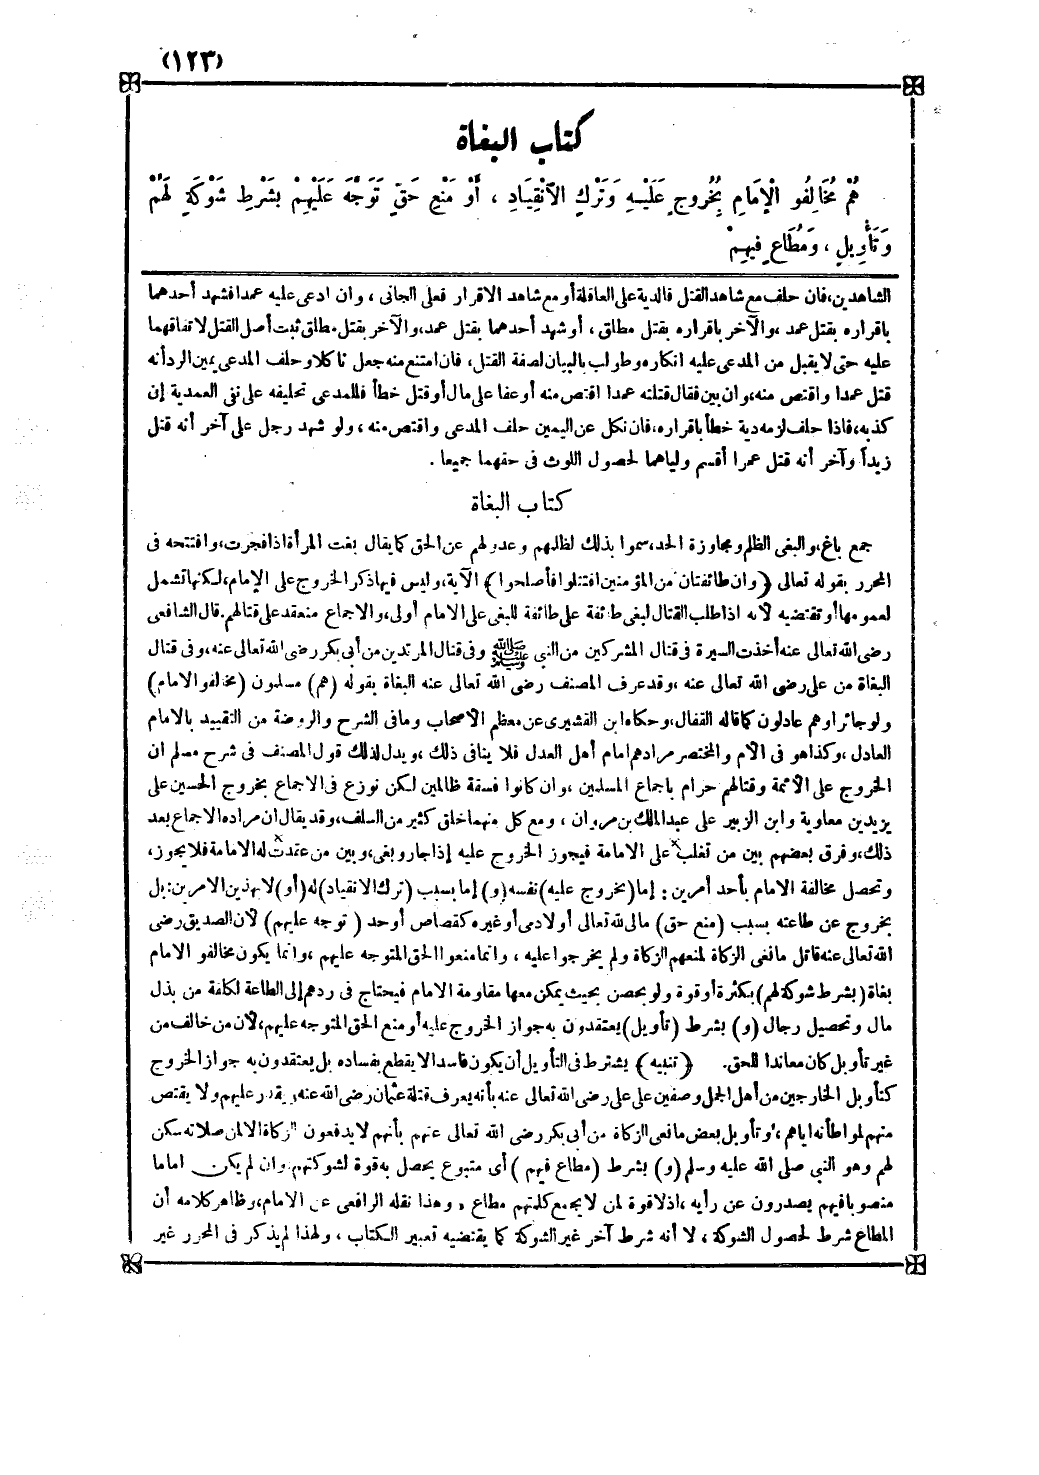 (١٢٣)
كتاب البغاة
هُمْ مُخَالِفُو الْإِمَامِ بِخُرُوجٍ عَلَيْهِ وَتَرْكِ الْاَنْقِيَادِ ، أَوْ مَنْعِ حَقٍّ تَوَجَّهَ عَلَيْهِمْ بِشَرْطِ شَوْكَةٍ لَهُمْ
وَتَأْوِيلٍ ، وَمُطَاعٍ فِيهِمْ
الشاهدين، فان حلف مع شاهد القتل فالدية على العاقلة أو مع شاهد الاقرار فعلى الجانى ، وان ادعى عليه عمدا فشهد أحدهما
باقراره بقتل عمد ، والآخر باقراره بقتل مطلق ، أو شهد أحدهما بقتل عمد، والآخر بقتل مطلق ثبت أصل القتل لاتفاقهما
عليه حتى لا يقبل من المدعى عليه انكاره وطولب بالبيان لصفة القتل، فان امتنع منه جعل ناكلا وحلف المدعى يمين الرد أنه
قتل عمدا واقتص منه، وان بين فقال قتلته عمدا اقتص منه أو عفا على مال أو قتل خطأ فللمدعى تحليفه على نفى العمدية إن
كذبه، فاذا حلف لزمه دية خطأ باقراره، فان نكل عن اليمين حلف المدعى واقتص منه ، ولو شهد رجل على آخر أنه قتل
زيداً وآخر أنه قتل عمرا أقسم ولياهما لحصول اللوث فى حقهما جميعا .
كتاب البغاة
جمع باغ، والبغى الظلم ومجاوزة الحد، سموا بذلك لظلمهم وعدولهم عن الحق كما يقال بغت المرأة اذا فجرت، وافتتحه فى
المحرر بقوله تعالى (وان طائفتان من المؤمنين اقتتلوا فأصلحوا) الآية، وليس فيها ذكر الخروج على الإمام، لكنها تشمل
لعمومها أو تقتضيه لأنه اذا طلب القتال لبغى طائفة على طائفة للبغى على الامام أولى، والاجماع منعقد على قتالهم. قال الشافعى
رضى الله تعالى عنه أخذت السيرة فى قتال المشركين من النبى ﷺ وفى قتال المرتدين من أبى بكر رضى الله تعالى عنه، وفى قتال
البغاة من على رضى الله تعالى عنه ، وقد عرف المصنف رضى الله تعالى عنه البغاة بقوله (هم) مسلمون (مخالفو الامام)
ولو جائرا وهم عادلون كما قاله القفال، وحكاه ابن القشيرى عن معظم الاصحاب وما فى الشرح والروضة من التقييد بالامام
العادل ، وكذا هو فى الأم والمختصر مرادهم امام أهل العدل فلا ينافى ذلك ، ويدل لذلك قول المصنف فى شرح مسلم ان
الخروج على الأئمة وقتالهم حرام باجماع المسلمين ، وان كانوا فسقة ظالمين لكن نوزع فى الاجماع بخروج الحسين على
يزيد بن معاوية وابن الزبير على عبد الملك بن مروان ، ومع كل منهما خلق كثير من السلف، وقد يقال ان مراده الاجماع بعد
ذلك، وفرق بعضهم بين من تغلب على الامامة فيجوز الخروج عليه إذا جار وبغى، وبين من عقدت له الامامة فلا يجوز،
وتحصل مخالفة الامام بأحد أمرين : إما (بخروج عليه) نفسه (و) إما بسبب (ترك الانقياد) له (أو) لا بهذين الامرين : بل
بخروج عن طاعته بسبب (منع حق) مالى لله تعالى أو لادمى أو غيره كقصاص أو حد ( توجه عليهم) لأن الصديق رضى
الله تعالى عنه قاتل مانعى الزكاة لمنعهم الزكاة ولم يخرجوا عليه ، وانما منعوا الحق المتوجه عليهم ، وانما يكون مخالفو الامام
بغاة (بشرط شوكة لهم) بكثرة أو قوة ولو بحصن بحيث يمكن معها مقاومة الامام فيحتاج فى ردهم إلى الطاعة لكلفة من بذل
مال وتحصيل رجال (و) بشرط (تأويل) يعتقدون به جواز الخروج عليه أو منع الحق المتوجه عليهم، لأن من خالف من
غير تأويل كان معاندا للحق. (تنبيه) يشترط فى التأويل أن يكون فاسدا لا يقطع بفساده بل يعتقدون به جواز الخروج
كتأويل الخارجين من أهل الجمل وصفين على على رضى الله تعالى عنه بأنه يعرف قتلة عثمان رضى الله عنه ويقدر عليهم ولا يقتص
منهم لمواطأته اياهم ، وتأويل بعض مانعى الزكاة من أبى بكر رضى الله تعالى عنهم بأنهم لا يدفعون الزكاة الا لمن صلاته سكن
لهم وهو النبى صلى الله عليه وسلم (و) بشرط (مطاع فيهم ) أى متبوع يحصل به قوة لشوكتهم وان لم يكن اماما
منصوبا فيهم يصدرون عن رأيه ، اذ لا قوة لمن لا يجمع كلمتهم مطاع . وهذا نقله الرافعى عن الامام، وظاهر كلامه أن
المطاع شرط لحصول الشوكة ، لا أنه شرط آخر غير الشوكة كما يقتضيه تعبير الكتاب ، ولهذا لم يذكر فى المحرر غير